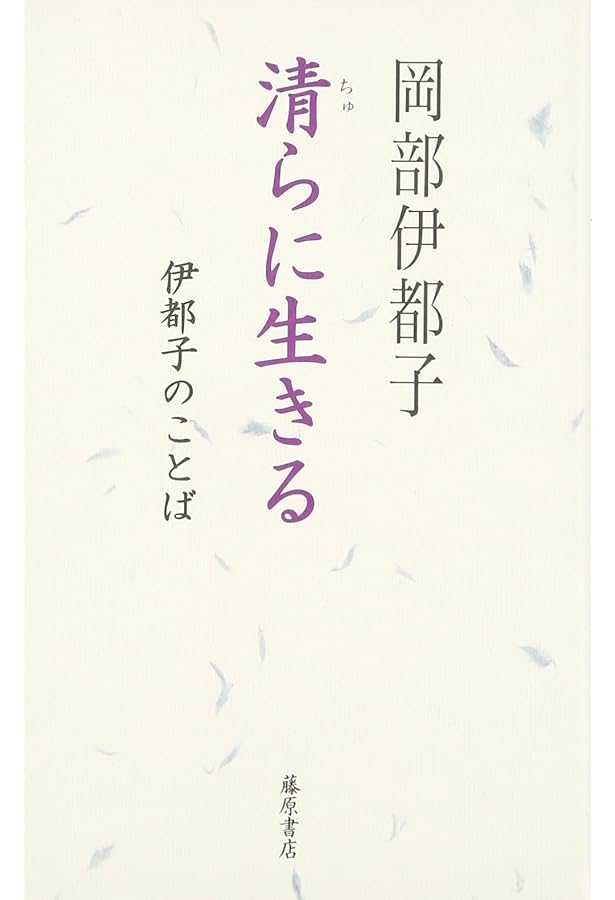 岡部伊都子
ちゅ
清らに生きる
伊都子のことば
藤原書店